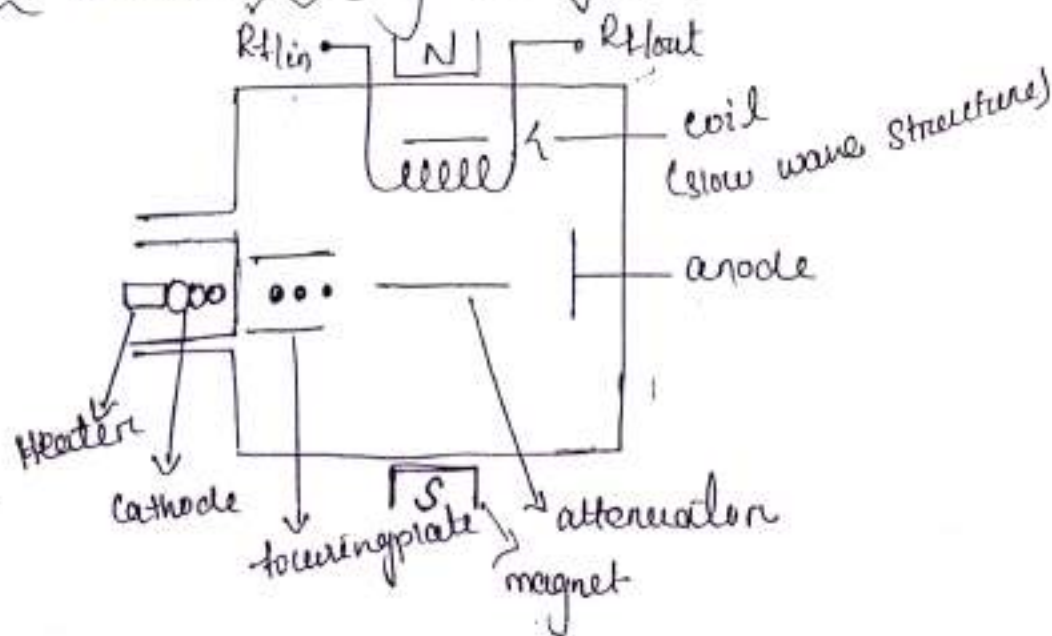 Rf/in
N
Rf/out
coil
(slow wave structure)
anode
Heater
Cathode
focusing plate
S
magnet
attenuator